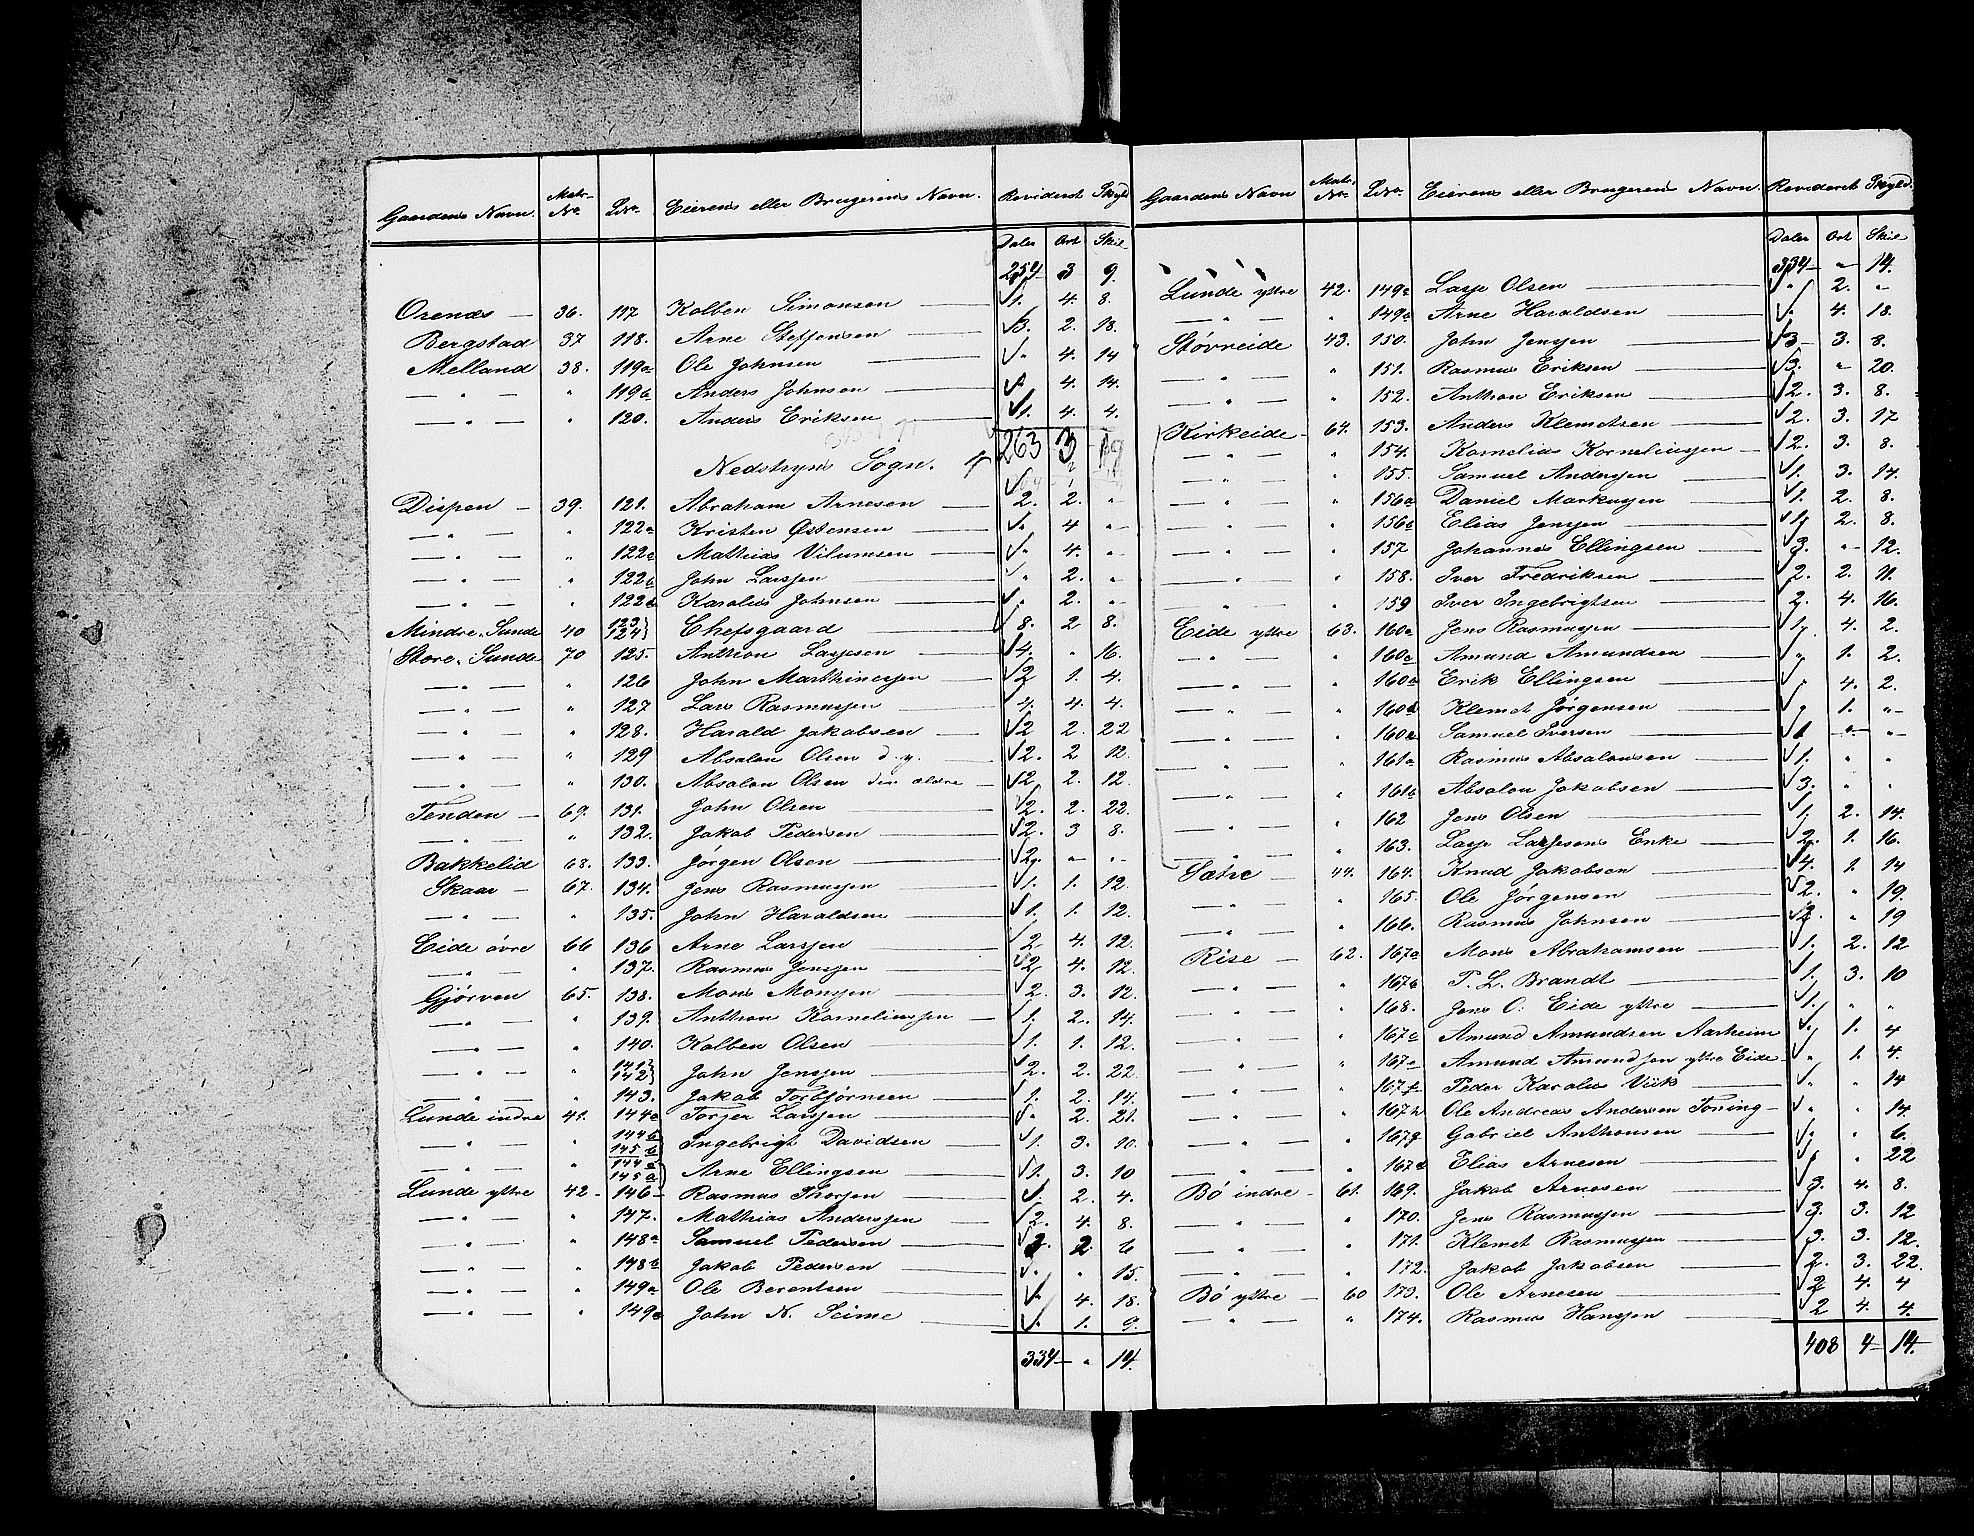 Gaardens Navn. Matr. No. LNo. Eierens eller Brugerens Navn. Revideret Skyld
Daler Ort Skil
254 3 9.
Orenæs — 36. 117 Kolben Simonsen — 1. 4. 8.
Bergstad 37 118. Arne Steffensen — 3. 2. 18.
Melland 38. 119a Ole Johnsen — " 4. 14
— " — " 119b Anders Johnsen — " 4. 14.
— " — " 120. Anders Eriksen — 1. 4. 4.
263 3 19
Nedstryns Sogn.
Dispen — 39. 121. Abraham Arnesen — 2. 2. "
— " — " 122a Kristen Østensen — " 4 "
— " — " 122 Mathias Vilumsen — " 4. "
— " — " 122 John Larssen — " 2. "
— " — " 122 Karolus Johnsen — " 2. "
Mindre Sunde 40 123 } 124 } Chefsgaard — 8. 2 8.
Store Sunde 70 125. Anthon Lassesen — 4. " 16.
— " — " 126 John Marthinessen — 2 1. 4.
— " — " 127 Lars Rasmussen — 4. 4. 4.
— " — " 128. Harald Jakobsen — 2 2. 22
— " — " 129 Absalon Olsen d. y. — 2. 2 12.
— " — " 130. Absalon Olsen den ældre — 2 2. 12.
Tenden — 69. 131. John Olsen — 2. 2. 22.
— " — " 132. Jakob Pedersen — 2. 3 8.
Bakkelid 68. 133. Jørgen Olsen — 2. " "
Skaar — 67. 134. Jens Rasmussen — 1. 1. 12.
— " — " 135. John Haraldsen — 1. 1. 12.
Eide øvre 66 136 Arne Larssen — 2 4. 12.
— " — " 137. Rasmus Jenssen — 2. 4. 12.
Gjørven 65. 138. Mons Monssen — 2. 3. 12.
— " — " 139. Anthon Korneliussen — 1. 2. 14.
— " — " 140. Kolben Olsen — 1. 1. 12.
— " — " 141 } 142 } John Jenssen — 2. 2. 22
— " — " 143. Jakob Torbjørnsen — 1. 2. 14.
Lunde indre 41. 144a Torjer Larssen — " 2. 21.
— " — " 144b 145b } Ingebrigt Davidsen — 1. 3. 10.
— " — " 144 145a } Arne Ellingsen — 1. 3. 10
Lunde ytre 42 — 146 — Rasmus Thorsen — 2. 4.
— " — " 147. Mathias Anderssen — 2. 4. 8.
— " — " 148a Samuel Pedersen — 2. 6
— " — " 148b Jakob Pedersen — " " 15.
— " — " 149a Ole Berentsen — " 4. 18.
— " — " 149 John N. Seime — " 1. 9.
334 — " 14.
Gaardens Navn Matr. No. LNo. Eierens eller Brugerens Navn. Revideret Skyld.
Daler Ort Skil
334 — " 14.
Lunde ytre 42. 149 Lasse Olsen — " 2. "
— " — " 149 Arne Haraldsen — " 4. 18.
Støvreide 43. 150. John Jenssen — 3 3. 8.
— " — " 151. Rasmus Eriksen — 3. " 20.
— " — " 152. Anthon Eriksen — 2. 3. 8.
Kirkeide — 64. 153. Anders Klemetsen — 2. 3. 17
— " — " 154. Kornelius Korneliussen — 2. 3. 8.
— " — " 155. Samuel Anderssen — 1. 3. 14.
— " — " 156a Daniel Markussen — 1. 2. 8.
— " — " 156b Elias Jenssen — 1. 2. 8.
— " — " 157 Johannes Ellingsen — 3. " 12.
— " — " 158. Iver Fredriksen — 2. 2. 11.
— " — " 159 Iver Ingebrigtsen — 2. 4. 16.
Eide ytre 63. 160a Jens Rasmussen — 1. 4. 2.
— " — " 160 Amund Amundsen — " 1. 2.
— " — " 160 Erik Ellingsen — " 4. 2.
— " — " 160d Klemet Jørgensen — " 1. "
— " — " 160 Samuel Iversen — 1 " "
— " — " 161a Rasmus Absalonsen — 1. " "
— " — " 161b Absalon Jakobsen — 3. " "
— " — " 162 Jens Olsen — 1. 2. 14.
— " — " 163. Lasse Lassesens Enke — 2. 1. 16.
Sætre — 44. 164. Knud Jakobsen — 4. 1. 14
— " — " 165. Ole Jørgensen — 2. " 19.
— " — " 166. Rasmus Johnsen — " 19
Rise — 62. 167a Mons Abrahamsen — 1. 2. 12
— " — " 167b P. L. Brandt — 1. 3. 10
— " — " 168. Jens O. Eide ytre — 1. " "
— " — " 167c Amund Amundsen Aarheim " 1. 4
— " — " 167e Amund Amundsen ytre Eide — " 1. 4.
— " — " 167f Peder Karolus Viik — " " 14
— " — " 167h Ole Andreas Andersen Toning — " " 14
— " — " 167g Gabriel Anthonsen — " " 6.
— " — " 167d Elias Arnesen — " " 22
Bø indre — 61. 169. Jakob Arnesen — 3. 4. 8.
— " — " 170. Jens Rasmussen — 3. 3. 12
— " — " 171. Klemet Rasmussen — 3. 3. 12.
— " — " 172. Jakob Jakobsen — 2. 3. 22.
Bø ytre — 60 173. Ole Arnesen — 2 4. 4
— " — " 174. Rasmus Hanssen — 2 4. 4.
408 4 14.